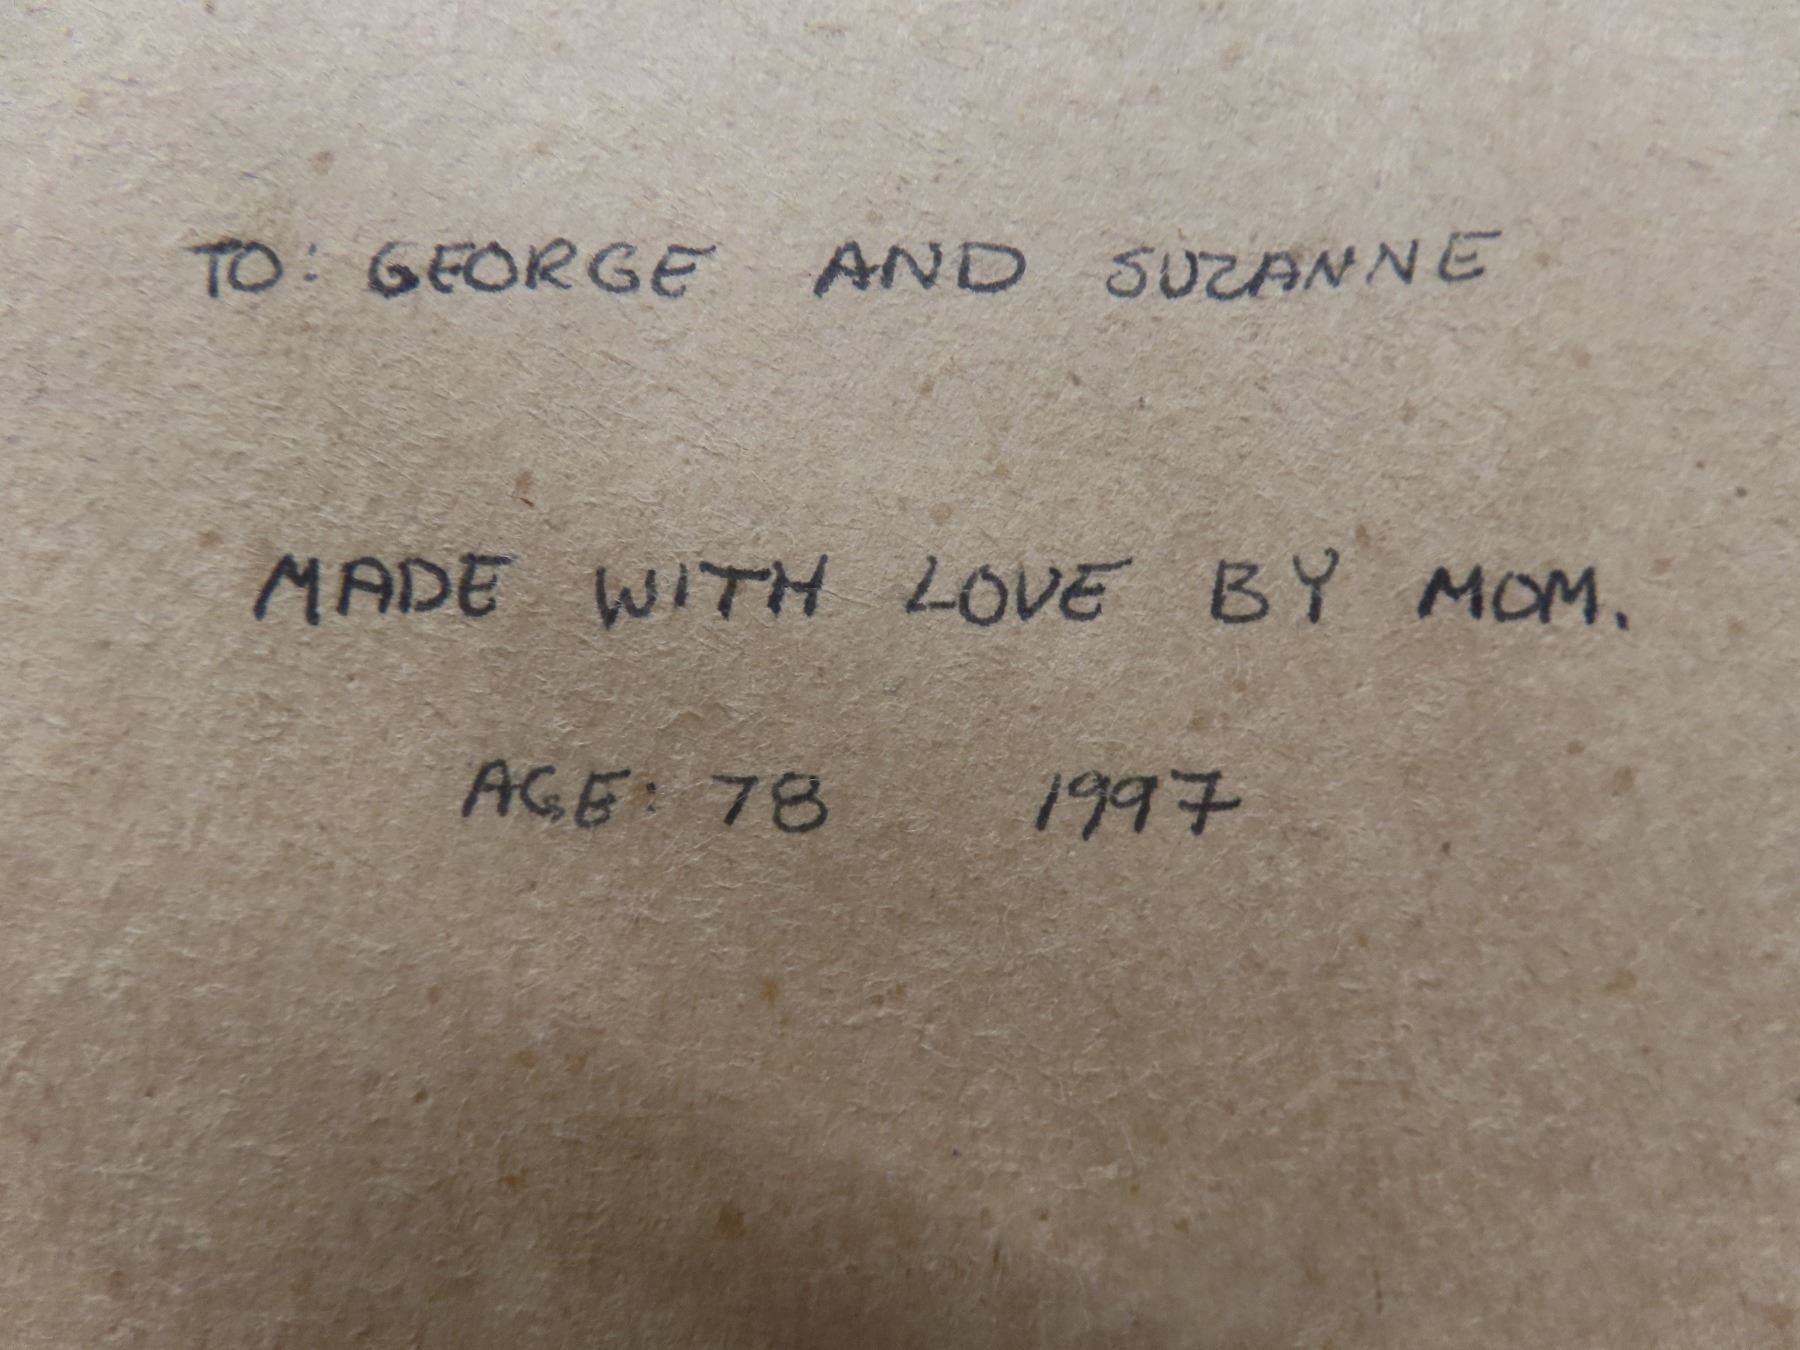 TO: GEORGE AND SUZANNE
MADE WITH LOVE BY MOM.
AGE: 78 1997